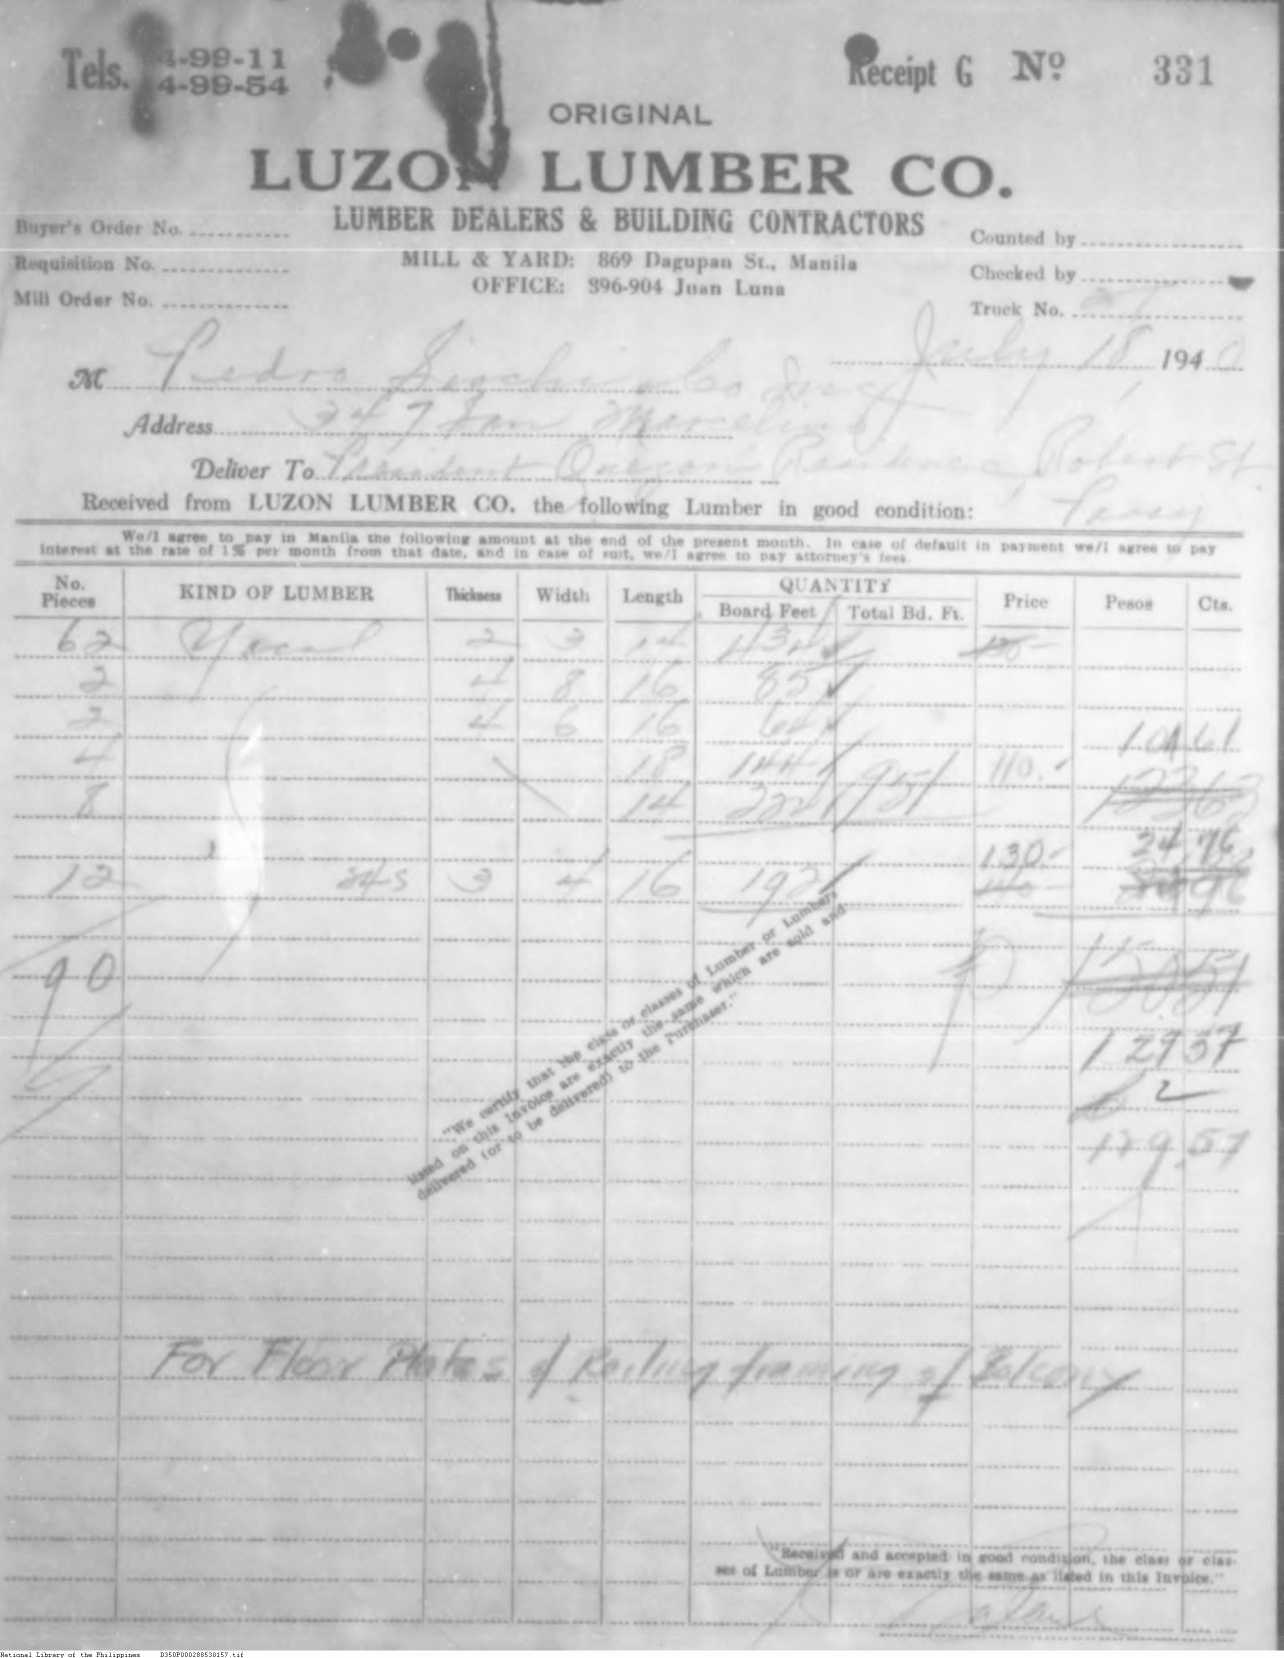 Tels. 4-99-11
4-99-54
Receipt G Nº 331
ORIGINAL
LUZON LUMBER CO.
LUMBER DEALERS & BUILDING CONTRACTORS
MILL & YARD: 869 Dagupan St., Manila
OFFICE: 896-904 Juan Luna
Buyer's Order No.
Requisition No.
Mill Order No.
Counted by
Checked by
Truck No.
July 18, 1940
M Pedro Siochi & Co Inc
Address 347 San Marcelino
Deliver To President Quezon's Residence, Robert St.
Pasay
Received from LUZON LUMBER CO. the following Lumber in good condition:
We/I agree to pay in Manila the following amount at the end of the present month. In case of default in payment we/I agree to pay
interest at the rate of 1% per month from that date, and in case of suit, we/I agree to pay attorney's fees.
No. Pieces KIND OF LUMBER Thickness Width Length QUANTITY Board Feet Total Bd. Ft. Price Pesos Cts.
62 Yacal 2 3 14 434
2 4 8 16 85
2 4 6 16 64
104 61
4 18 144 951 110.-
8 14 224
24 96
130.-
12 S4S 3 4 16 192
90
129 57
2
129.57
"We certify that the class or classes of Lumber or Lumbers
listed on this invoice are exactly the same which are sold and
delivered (or to be delivered) to the Purchaser."
For Floor Plates of Railing framing of Balcony
"Received and accepted in good condition, the class or clas-
ses of Lumber is or are exactly the same as listed in this Invoice."
National Library of the Philippines D350P000288530157.tif